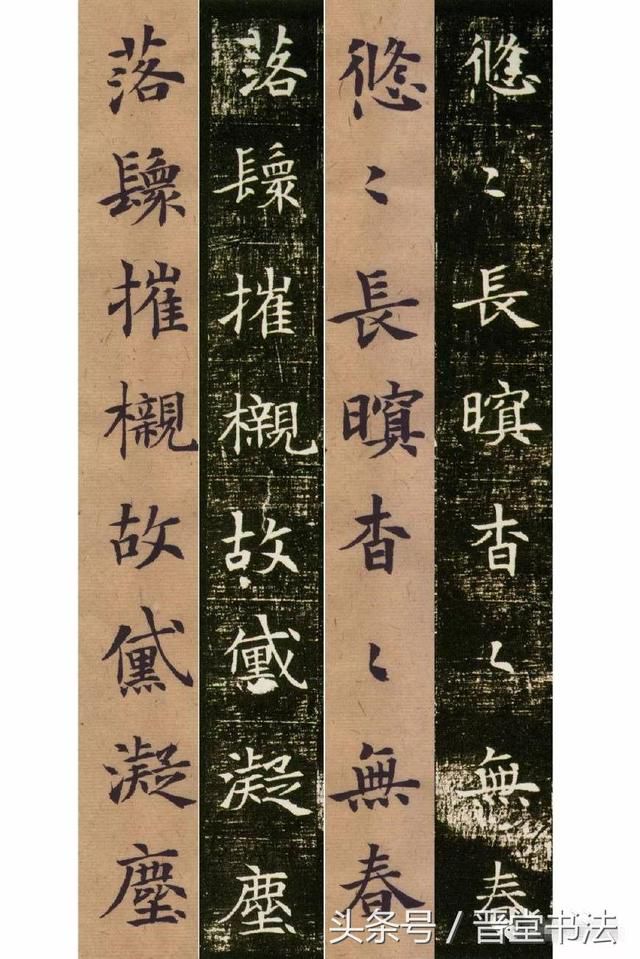 悠〻長暝杳〻無春
悠〻長暝杳〻無春
落鬟摧櫬故黛凝塵
落鬟摧櫬故黛凝塵
头条号 / 晋堂书法